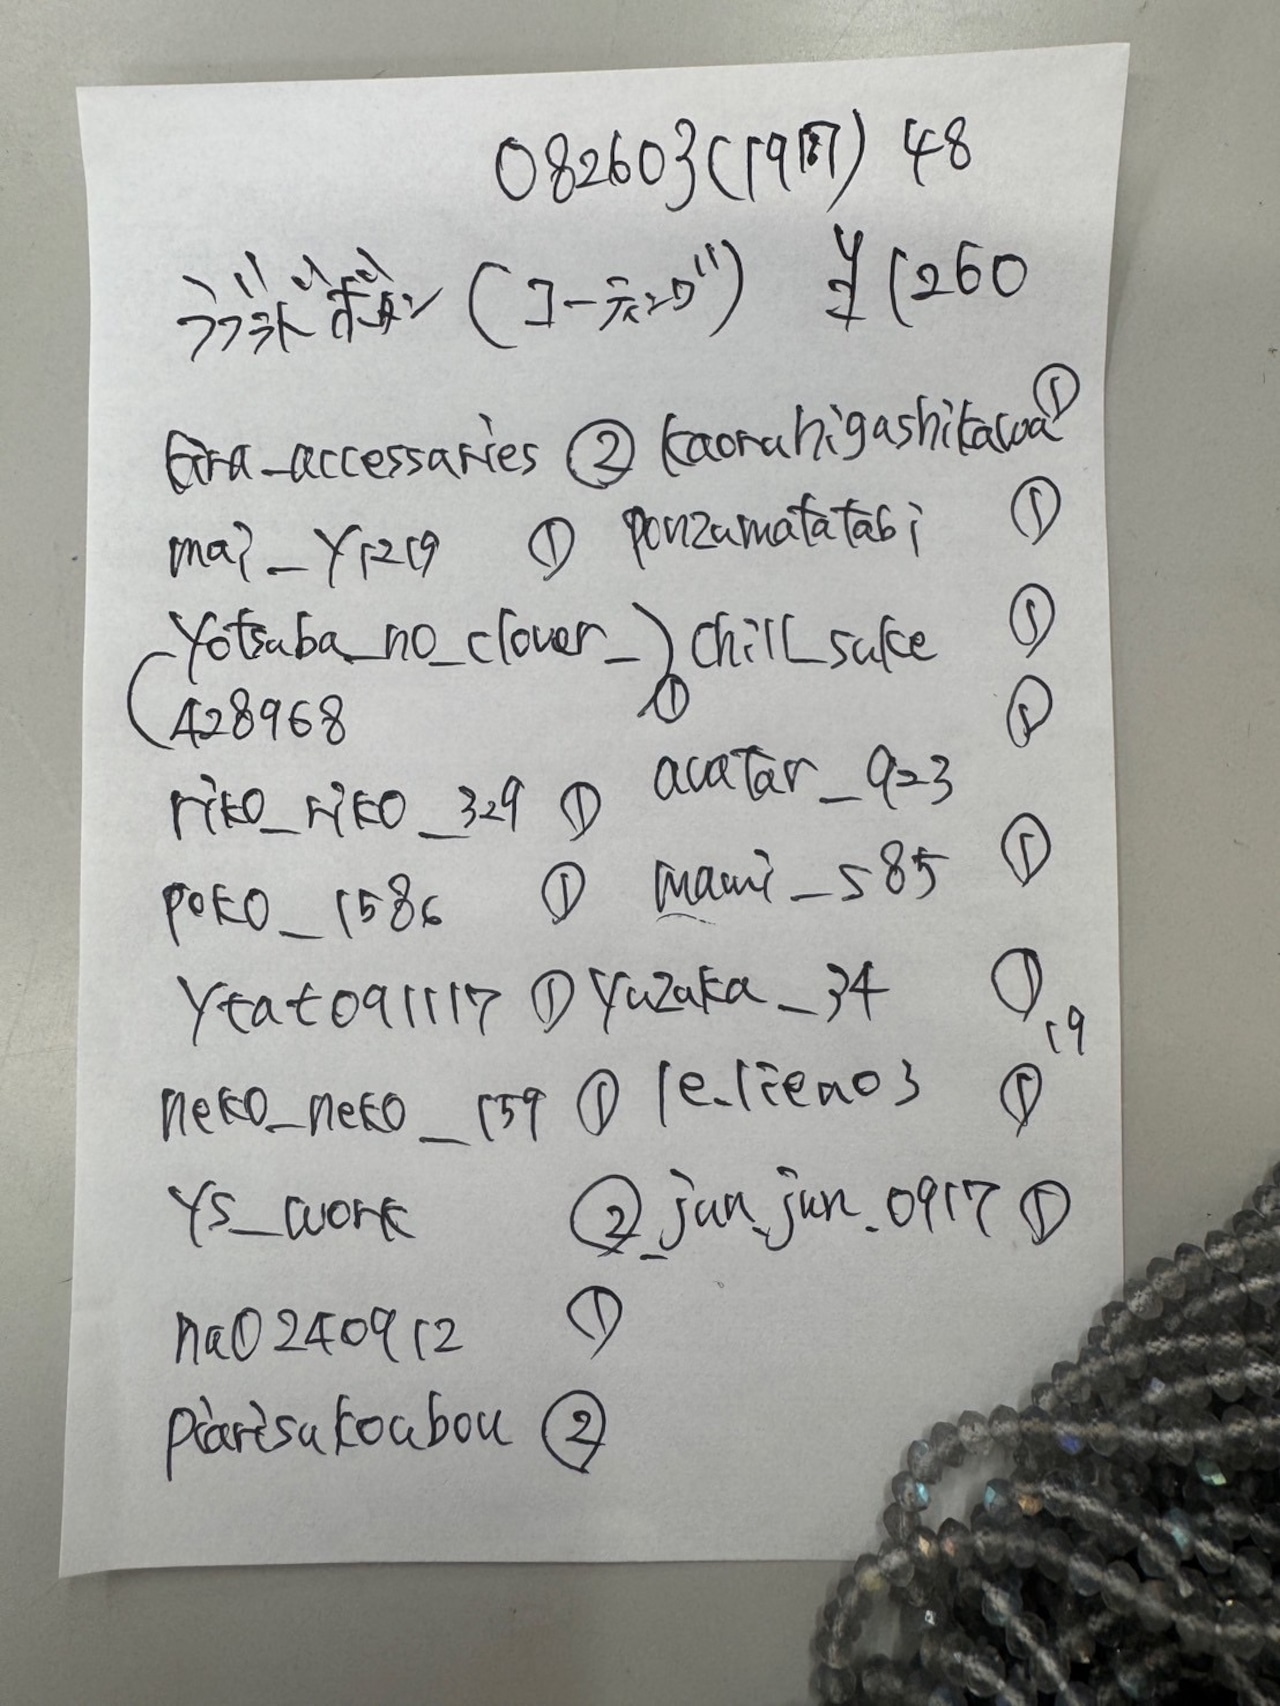 082603(191) 48
(コーティング) ¥1260
kira_accessaries ② kaoruhigashikawa ①
mai_y1219 ① ponzumatatabi ①
(yotsuba_no_clover_) chill_suke ①
428968 ① ①
avatar_923
riko_riko_329 ①
poko_1586 ① mami_s85 ①
ytat091117 ① yuzuka_34 ①
19
neko_neko_159 ① le.lien03 ①
ys_work ② _jun.jun.0917 ①
na0240912 ①
piarisukoubou ②